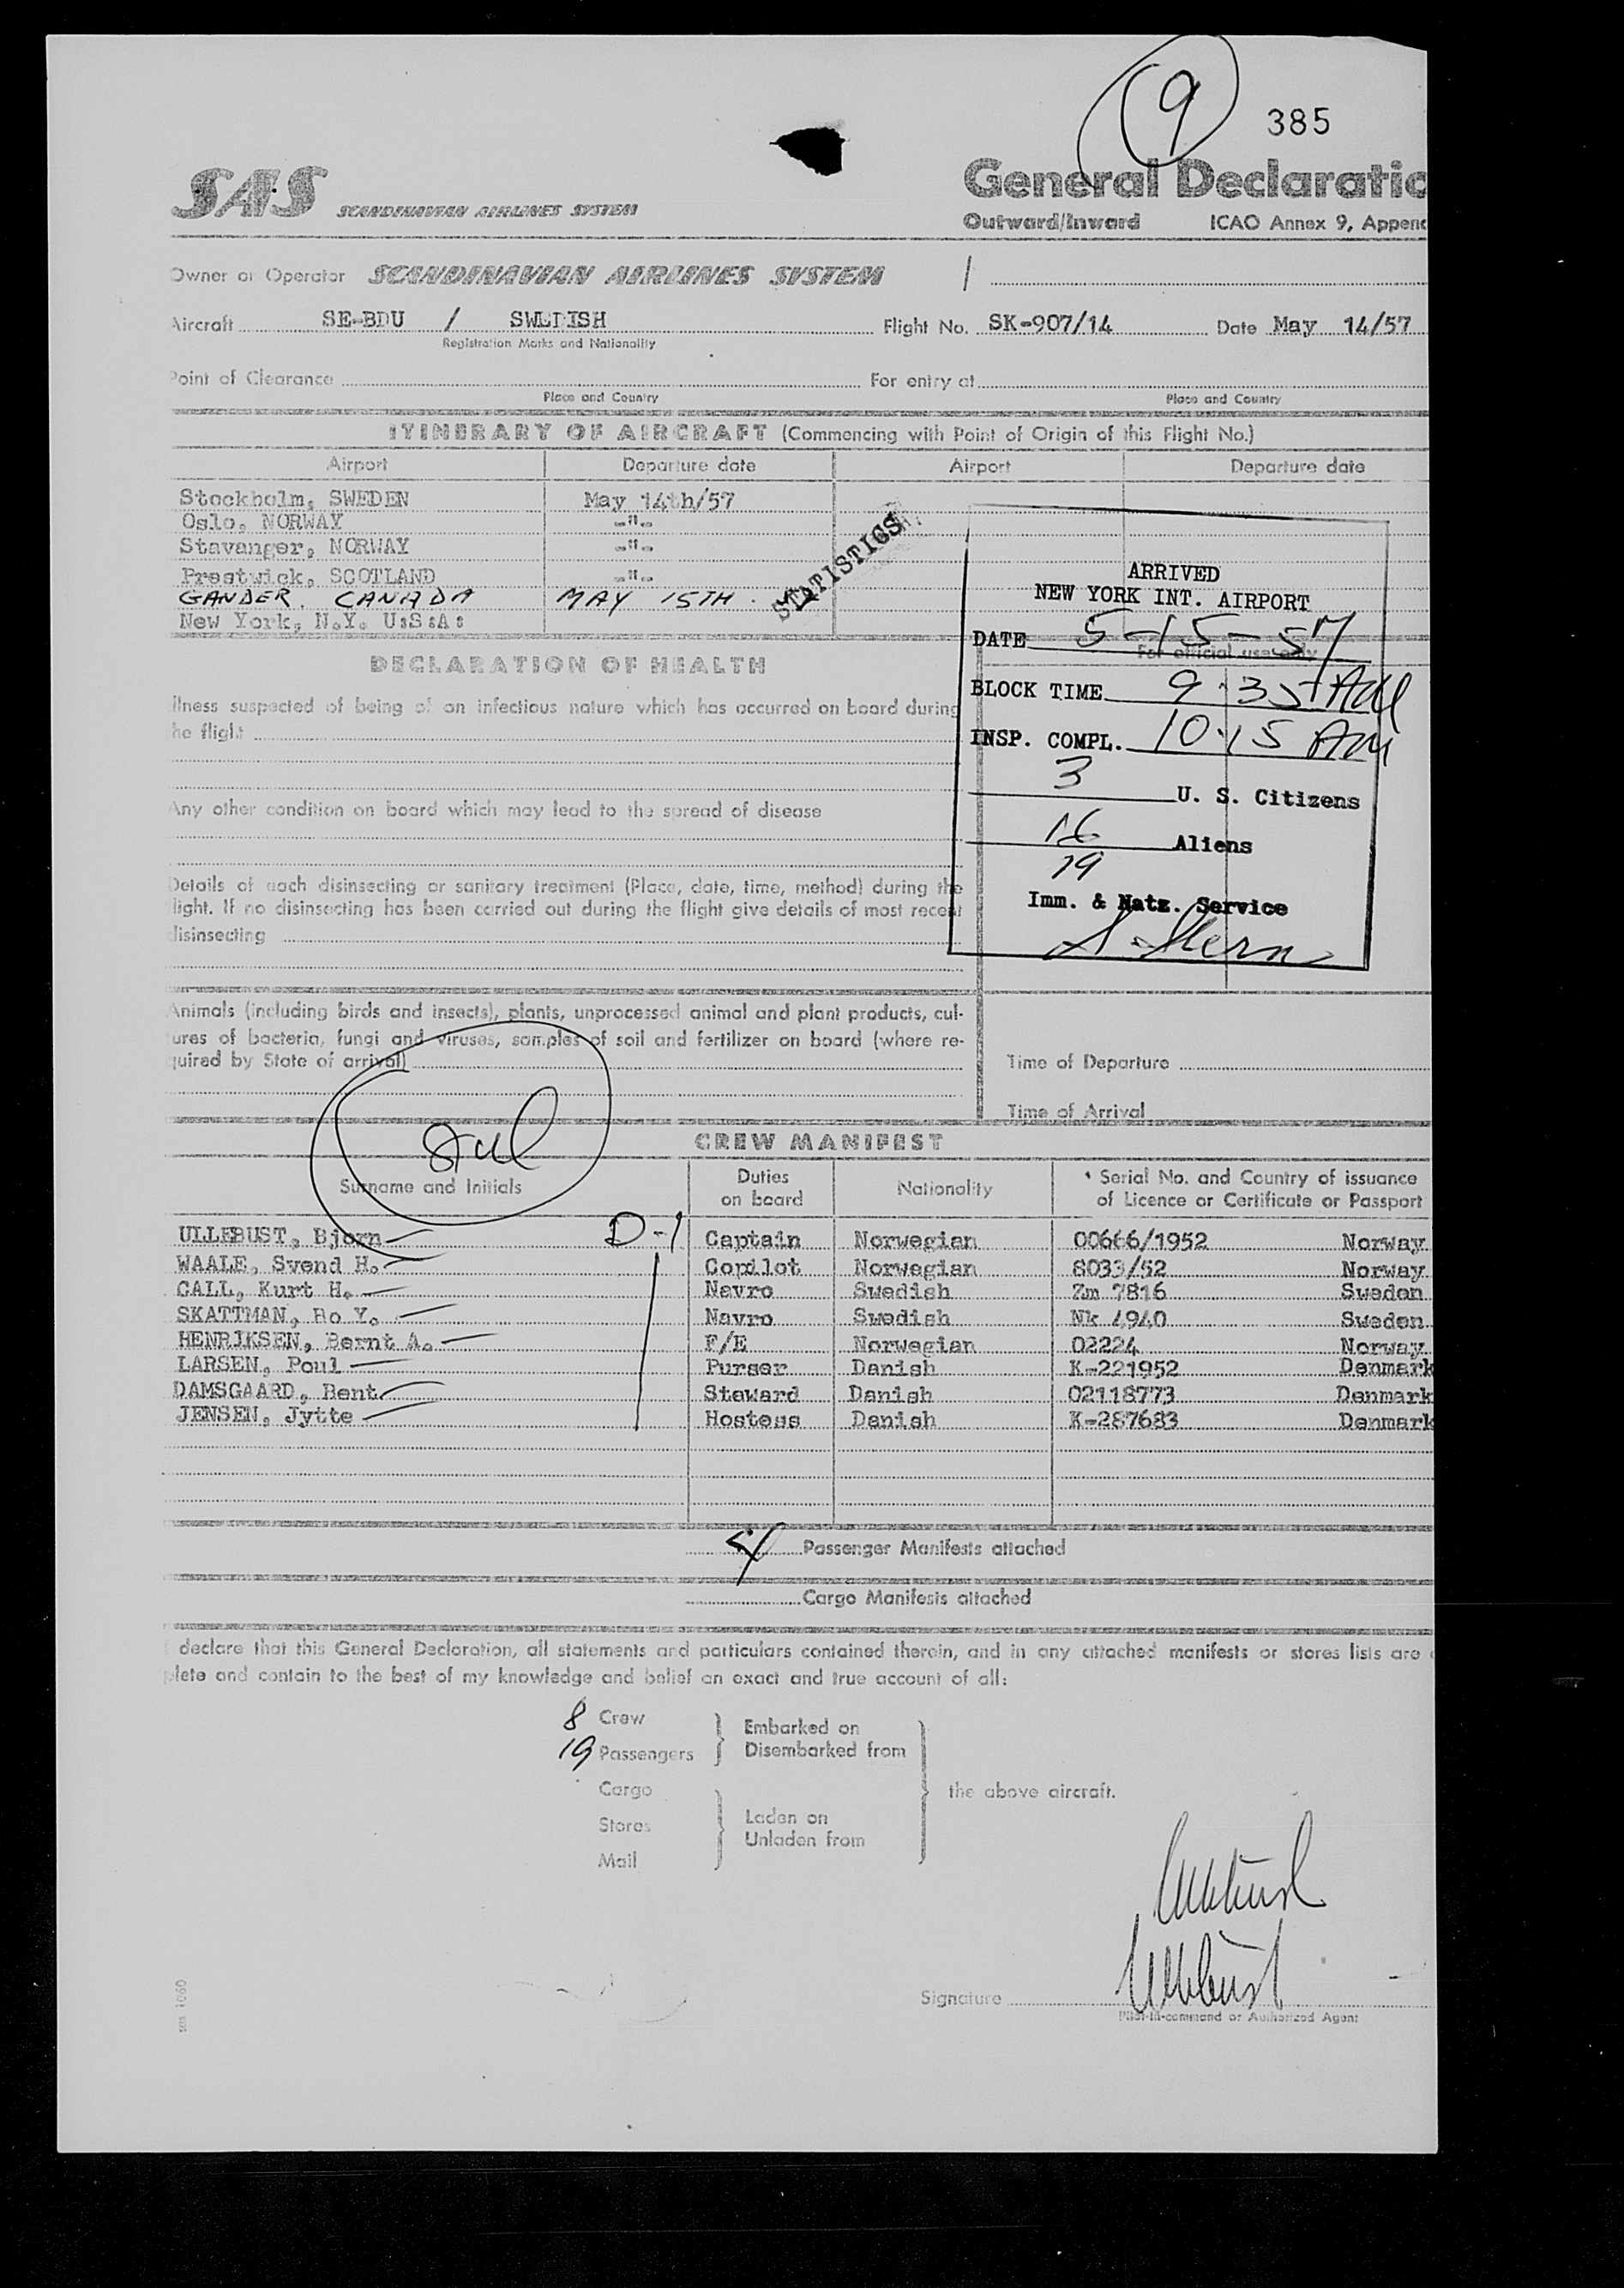 9
385
SAS SCANDINAVIAN AIRLINES SYSTEM
General Declaratio
Outward/Inward ICAO Annex 9, Append
Owner or Operator SCANDINAVIAN AIRLINES SYSTEM
Aircraft SE-BDU / SWEDISH Flight No. SK-907/14 Date May 14/57
Registration Marks and Nationality
Point of Clearance For entry at
Place and Country Place and Country
ITINERARY OF AIRCRAFT (Commencing with Point of Origin of this Flight No.)
Airport Departure date Airport Departure date
Stockholm, SWEDEN May 14th/57
Oslo, NORWAY -"-
Stavanger, NORWAY -"-
Prestwick, SCOTLAND -"-
GANDER. CANADA MAY 15TH.
New York, N.Y. U:S:A:
STATISTICS
ARRIVED
NEW YORK INT. AIRPORT
DATE 5-15-57
For official use only
BLOCK TIME 9:35 AM
INSP. COMPL. 10:15 AM
3 U. S. Citizens
16 Aliens
19
Imm. & Natz. Service
S. Stern
DECLARATION OF HEALTH
illness suspected of being of an infectious nature which has occurred on board during
he flight
Any other condition on board which may lead to the spread of disease
Details of each disinsecting or sanitary treatment (Place, date, time, method) during the
light. If no disinsecting has been carried out during the flight give details of most recent
disinsecting
Animals (including birds and insects), plants, unprocessed animal and plant products, cul-
ures of bacteria, fungi and viruses, samples of soil and fertilizer on board (where re-
quired by State of arrival)
Time of Departure
Time of Arrival
CREW MANIFEST
Surname and Initials Duties on board Nationality * Serial No. and Country of issuance of Licence or Certificate or Passport
D-1
ULLEBUST, Bjorn Captain Norwegian 00666/1952 Norway
WAALE, Svend H. Copilot Norwegian 8033/52 Norway
CALL, Kurt H. Navro Swedish Zm 7816 Sweden
SKATTMAN, Bo Y. Navro Swedish Nk 4940 Sweden
HENRIKSEN, Bernt A. F/E Norwegian 02224 Norway
LARSEN, Poul Purser Danish K-221952 Denmark
DAMSGAARD, Bent Steward Danish 02118773 Denmark
JENSEN, Jytte Hostess Danish K-287683 Denmark
4 Passenger Manifests attached
Cargo Manifests attached
declare that this General Declaration, all statements and particulars contained therein, and in any attached manifests or stores lists are
plete and contain to the best of my knowledge and belief an exact and true account of all:
8 Crew
19 Passengers
Embarked on
Disembarked from
Cargo
Stores
Mail
Laden on
Unladen from
the above aircraft.
Ullebust
Ullebust
Signature
Pilot-in-command or Authorized Agent
sas 1060